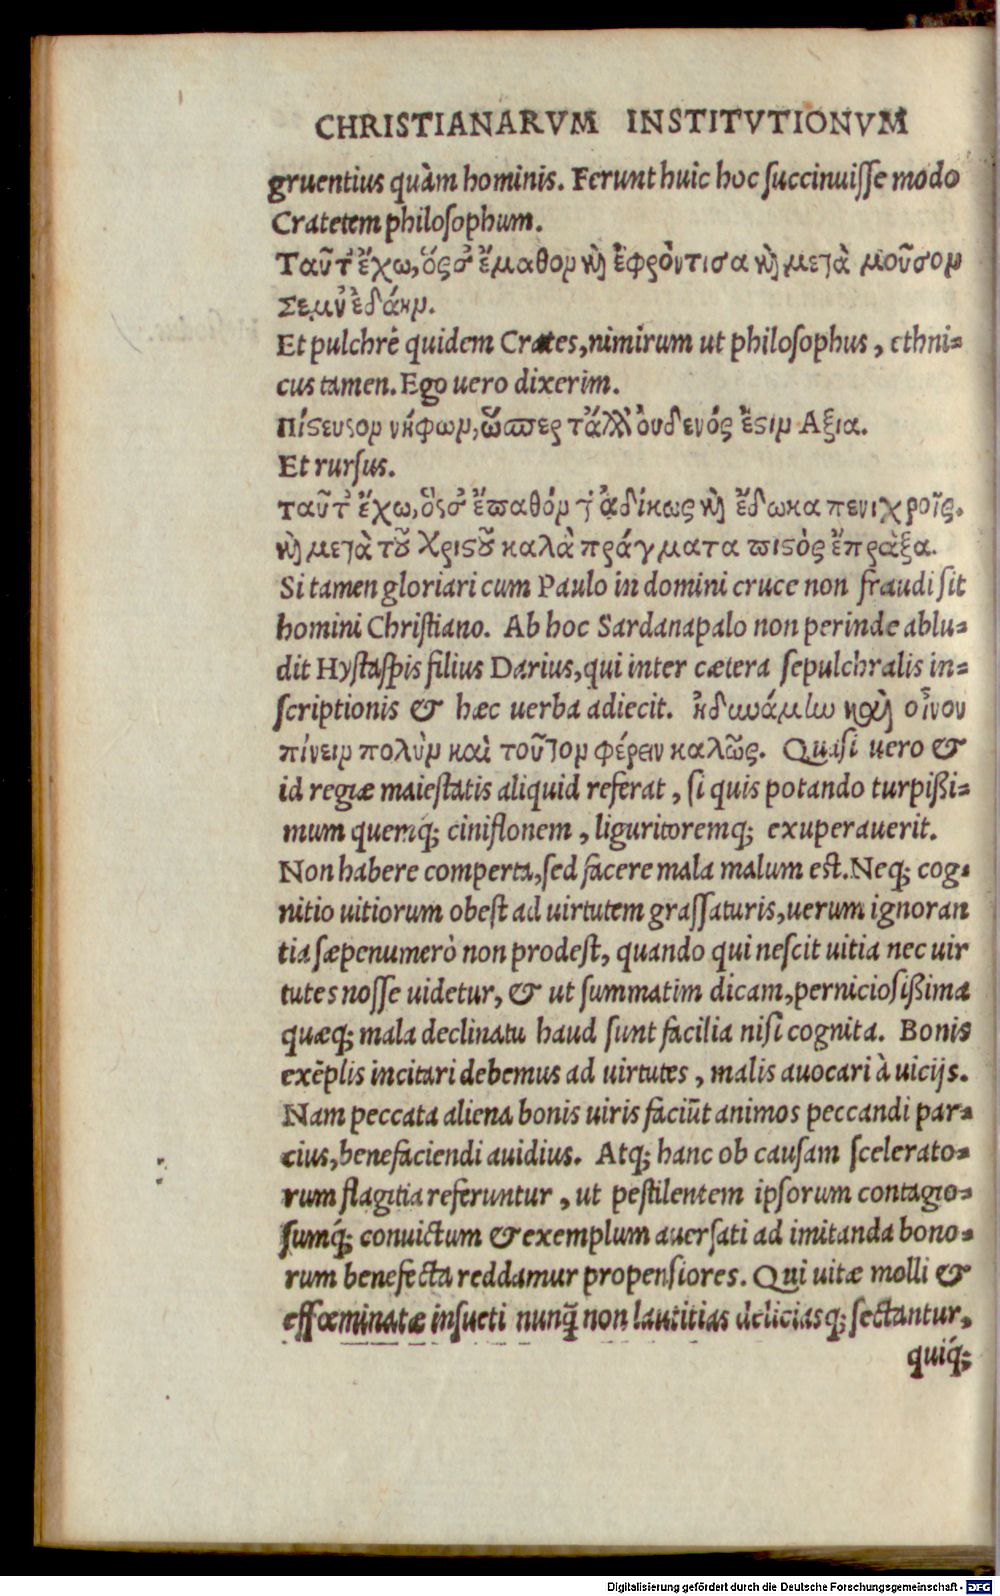 CHRISTIANARVM INSTITVTIONVM
gruentius quàm hominis. Ferunt huic hoc succinuisse modo
Cratetem philosophum.
Ταῦτ' ἔχω, ὅςσ' ἔμαθον κὴ ἐφρόντισα κὴ μετὰ μοῦσον
Σεμν' ἐδάην.
Et pulchrè quidem Crates, nimirum ut philosophus, ethni-
cus tamen. Ego uero dixerim.
Πίστευσον νήφων, ὥσπερ τἄλλ' ὀυδενός ἐστιν Αξια.
Et rursus.
Ταῦτ' ἔχω, ὅσσ' ἔπαθόν τ' ἀδίκως κὴ ἔδωκα πενιχροῖς.
κὴ μετὰ τοῦ Χριστοῦ καλὰ πράγματα πιστὸς ἔπραξα.
Si tamen gloriari cum Paulo in domini cruce non fraudi sit
homini Christiano. Ab hoc Sardanapalo non perinde ablu-
dit Hystaspis filius Darius, qui inter cætera sepulchralis in-
scriptionis & hæc uerba adiecit. ἠδυνάμην καὶ οἶνον
πίνειν πολὺν καὶ τοῦτον φέρειν καλῶς. Quasi uero &
id regiæ maiestatis aliquid referat, si quis potando turpißi-
mum quemq; ciniflonem, liguritoremq; exuperauerit.
Non habere comperta, sed facere mala malum est. Neq; cog-
nitio uitiorum obest ad uirtutem grassaturis, uerum ignoran
tia sæpenumerò non prodest, quando qui nescit uitia nec uir
tutes nosse uidetur, & ut summatim dicam, perniciosißima
quæq; mala declinatu haud sunt facilia nisi cognita. Bonis
exēplis incitari debemus ad uirtutes, malis auocari à uicijs.
Nam peccata aliena bonis uiris faciūt animos peccandi par-
cius, benefaciendi auidius. Atq; hanc ob causam scelerato-
rum flagitia referuntur, ut pestilentem ipsorum contagio-
sumq́; conuictum & exemplum auersati ad imitanda bono-
rum benefecta reddamur propensiores. Qui uitæ molli &
effœminatæ insueti nunq̃ non lautitias deliciasq; sectantur,
quiq́;
Digitalisierung gefördert durch die Deutsche Forschungsgemeinschaft - DFG